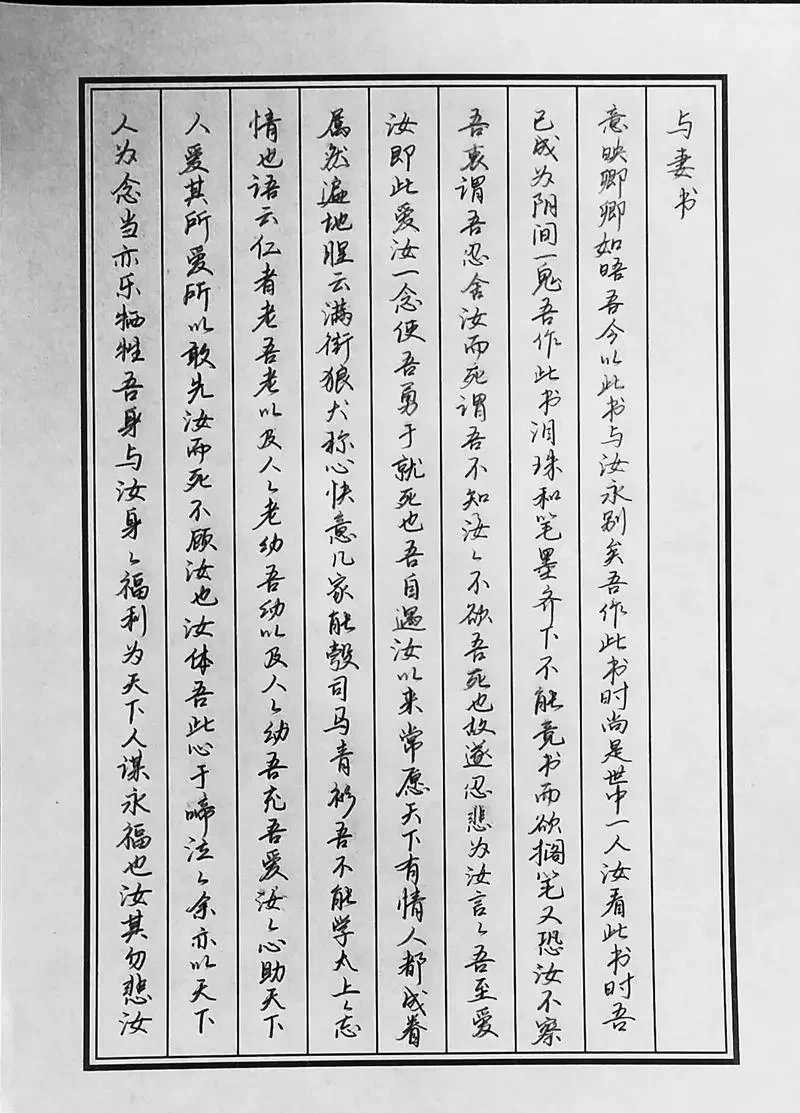 与妻书
意映卿卿如晤吾今以此书与汝永别矣吾作此书时尚是世中一人汝看此书时吾
已成为阴间一鬼吾作此书泪珠和笔墨齐下不能竟书而欲搁笔又恐汝不察
吾衷谓吾忍舍汝而死谓吾不知汝之不欲吾死也故遂忍悲为汝言之吾至爱
汝即此爱汝一念使吾勇于就死也吾自遇汝以来常愿天下有情人都成眷
属然遍地腥云满街狼犬称心快意几家能彀司马青衫吾不能学太上之忘
情也语云仁者老吾老以及人之老幼吾幼以及人之幼吾充吾爱汝之心助天下
人爱其所爱所以敢先汝而死不顾汝也汝体吾此心于啼泣之余亦以天下
人为念当亦乐牺牲吾身与汝身之福利为天下人谋永福也汝其勿悲汝